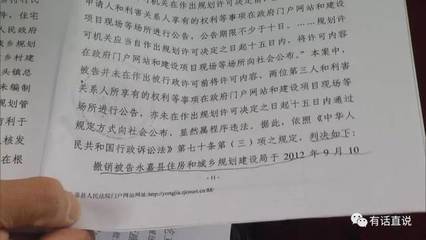 申请人和利害关系人所享有的权利等事项在政府门户网站和建设
项目现场等场所进行公告，公告期限不少于十日。……规划许
可机关应当自作出规划许可决定之日起十五日内，将许可内容
在政府门户网站和建设项目现场等场所向社会公布。"本案中，
被告并未在作出被诉行政许可前将许可内容、两位第三人和利害
关系人所享有的权利等事项在政府门户网站和建设项目现场等
场所进行公告，亦未在作出许可决定之日起十五日内通过
规定方式向社会公布，显然属程序违法。据此，依照《中华人
民共和国行政诉讼法》第七十条第（三）项之规定，判决如下：
撤销被告永嘉县住房和城乡规划建设局于2012年9月10
- 11 -
县人民法院门户网站网址:http://yongjia.zjcourt.cn:88/
村村民
，住宅
人民政府
乡规划
乡村建
头镇总
未编制
规划管
有利于
人核发
与不
有话直说